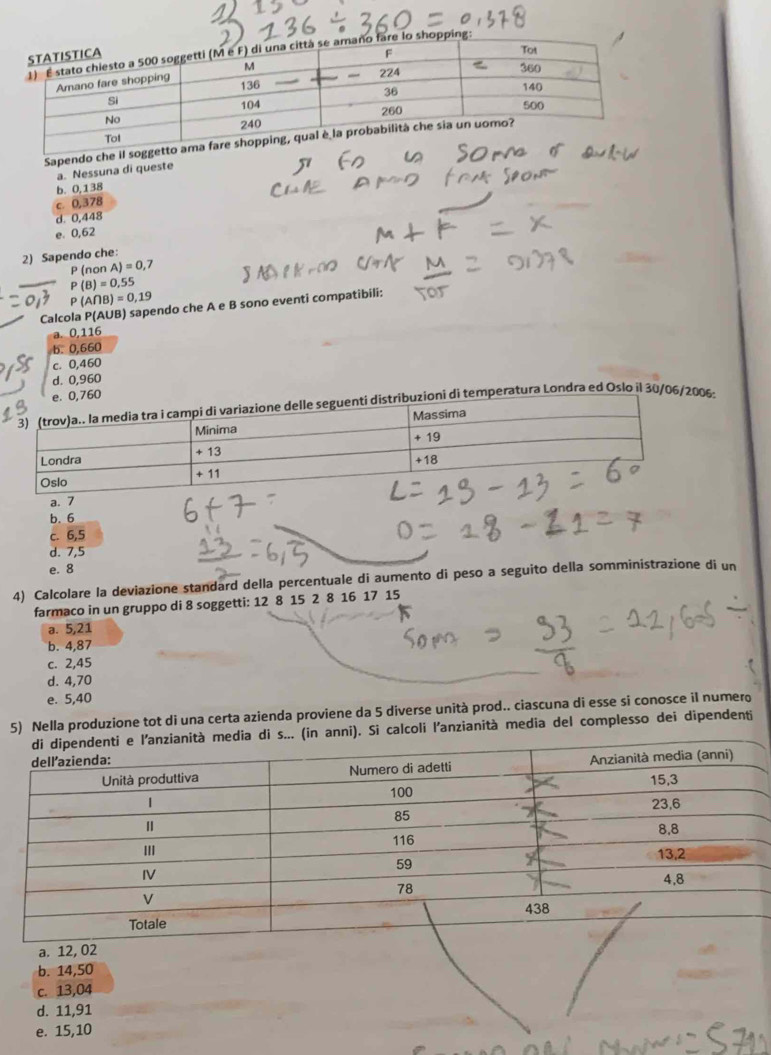 2) 136 ÷ 360 = 0,378
STATISTICA
1) È stato chiesto a 500 soggetti (M e F) di una città se amano fare lo shopping:
Amano fare shopping M F Tot
Si 136 224 360
No 104 36 140
Tot 240 260 500
Sapendo che il soggetto ama fare shopping, qual è la probabilità che sia un uomo?
a. Nessuna di queste
b. 0,138
c. 0,378
d. 0,448
e. 0,62
M + F = X
M = 0,378
TOT
2) Sapendo che:
P (non A) = 0,7
= 0,3
P (B) = 0,55
P (A∩B) = 0,19
Calcola P(AUB) sapendo che A e B sono eventi compatibili:
a. 0,116
b. 0,660
c. 0,460
d. 0,960
e. 0,760
3) (trov)a.. la media tra i campi di variazione delle seguenti distribuzioni di temperatura Londra ed Oslo il 30/06/2006:
Minima Massima
Londra + 13 + 19
Oslo + 11 +18
a. 7
b. 6
c. 6,5
d. 7,5
e. 8
L = 19 - 13 = 6°
6 + 7 =
O = 18 - 11 = 7
13 = 6,5
2
4) Calcolare la deviazione standard della percentuale di aumento di peso a seguito della somministrazione di un
farmaco in un gruppo di 8 soggetti: 12 8 15 2 8 16 17 15
a. 5,21
b. 4,87
c. 2,45
d. 4,70
e. 5,40
93 = 11,625
8
5) Nella produzione tot di una certa azienda proviene da 5 diverse unità prod.. ciascuna di esse si conosce il numero
di dipendenti e l'anzianità media di s... (in anni). Si calcoli l'anzianità media del complesso dei dipendenti
dell'azienda:
Unità produttiva Numero di adetti Anzianità media (anni)
I 100 15,3
II 85 23,6
III 116 8,8
IV 59 13,2
V 78 4,8
Totale 438
a. 12, 02
b. 14,50
c. 13,04
d. 11,91
e. 15,10